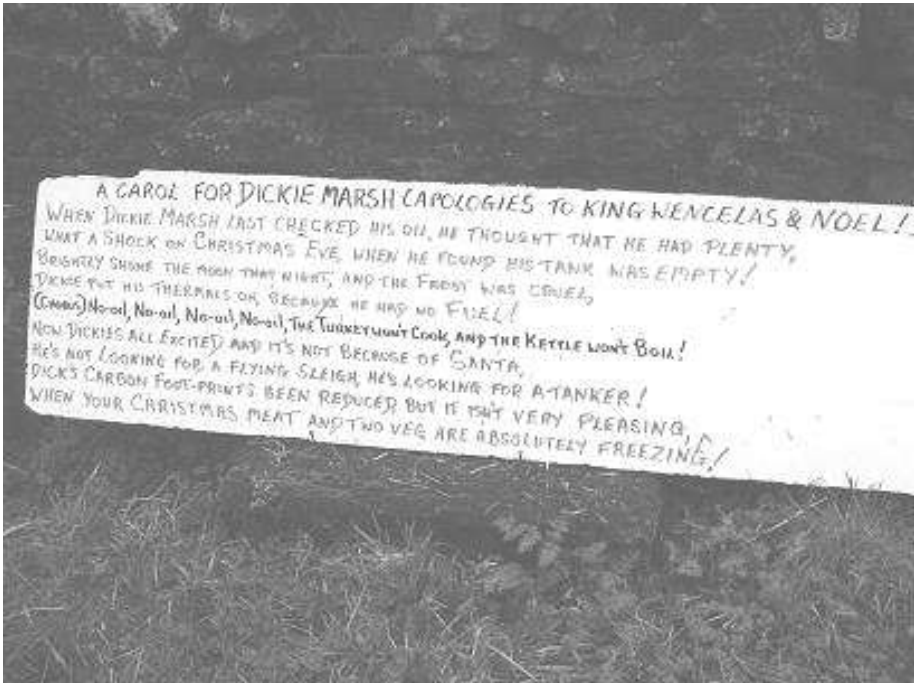 A CAROL FOR DICKIE MARSH (APOLOGIES TO KING WENCELAS & NOEL!)
WHEN DICKIE MARSH LAST CHECKED HIS OIL, HE THOUGHT THAT HE HAD PLENTY,
WHAT A SHOCK ON CHRISTMAS EVE, WHEN HE FOUND HIS TANK WAS EMPTY!
BRIGHTLY SHONE THE MOON THAT NIGHT, AND THE FROST WAS CRUEL,
DICKIE PUT HIS THERMALS ON, BECAUSE HE HAD NO FUEL!
(CHORUS) NO-OIL, NO-OIL, NO-OIL, NO-OIL, THE TURKEY WON'T COOK, AND THE KETTLE WON'T BOIL!
NOW DICKIES ALL EXCITED AND IT'S NOT BECAUSE OF SANTA,
HE'S NOT LOOKING FOR A FLYING SLEIGH, HE'S LOOKING FOR A-TANKER!
DICK'S CARBON FOOT-PRINTS BEEN REDUCED, BUT IT ISN'T VERY PLEASING,
WHEN YOUR CHRISTMAS MEAT AND TWO VEG ARE ABSOLUTELY FREEZING!